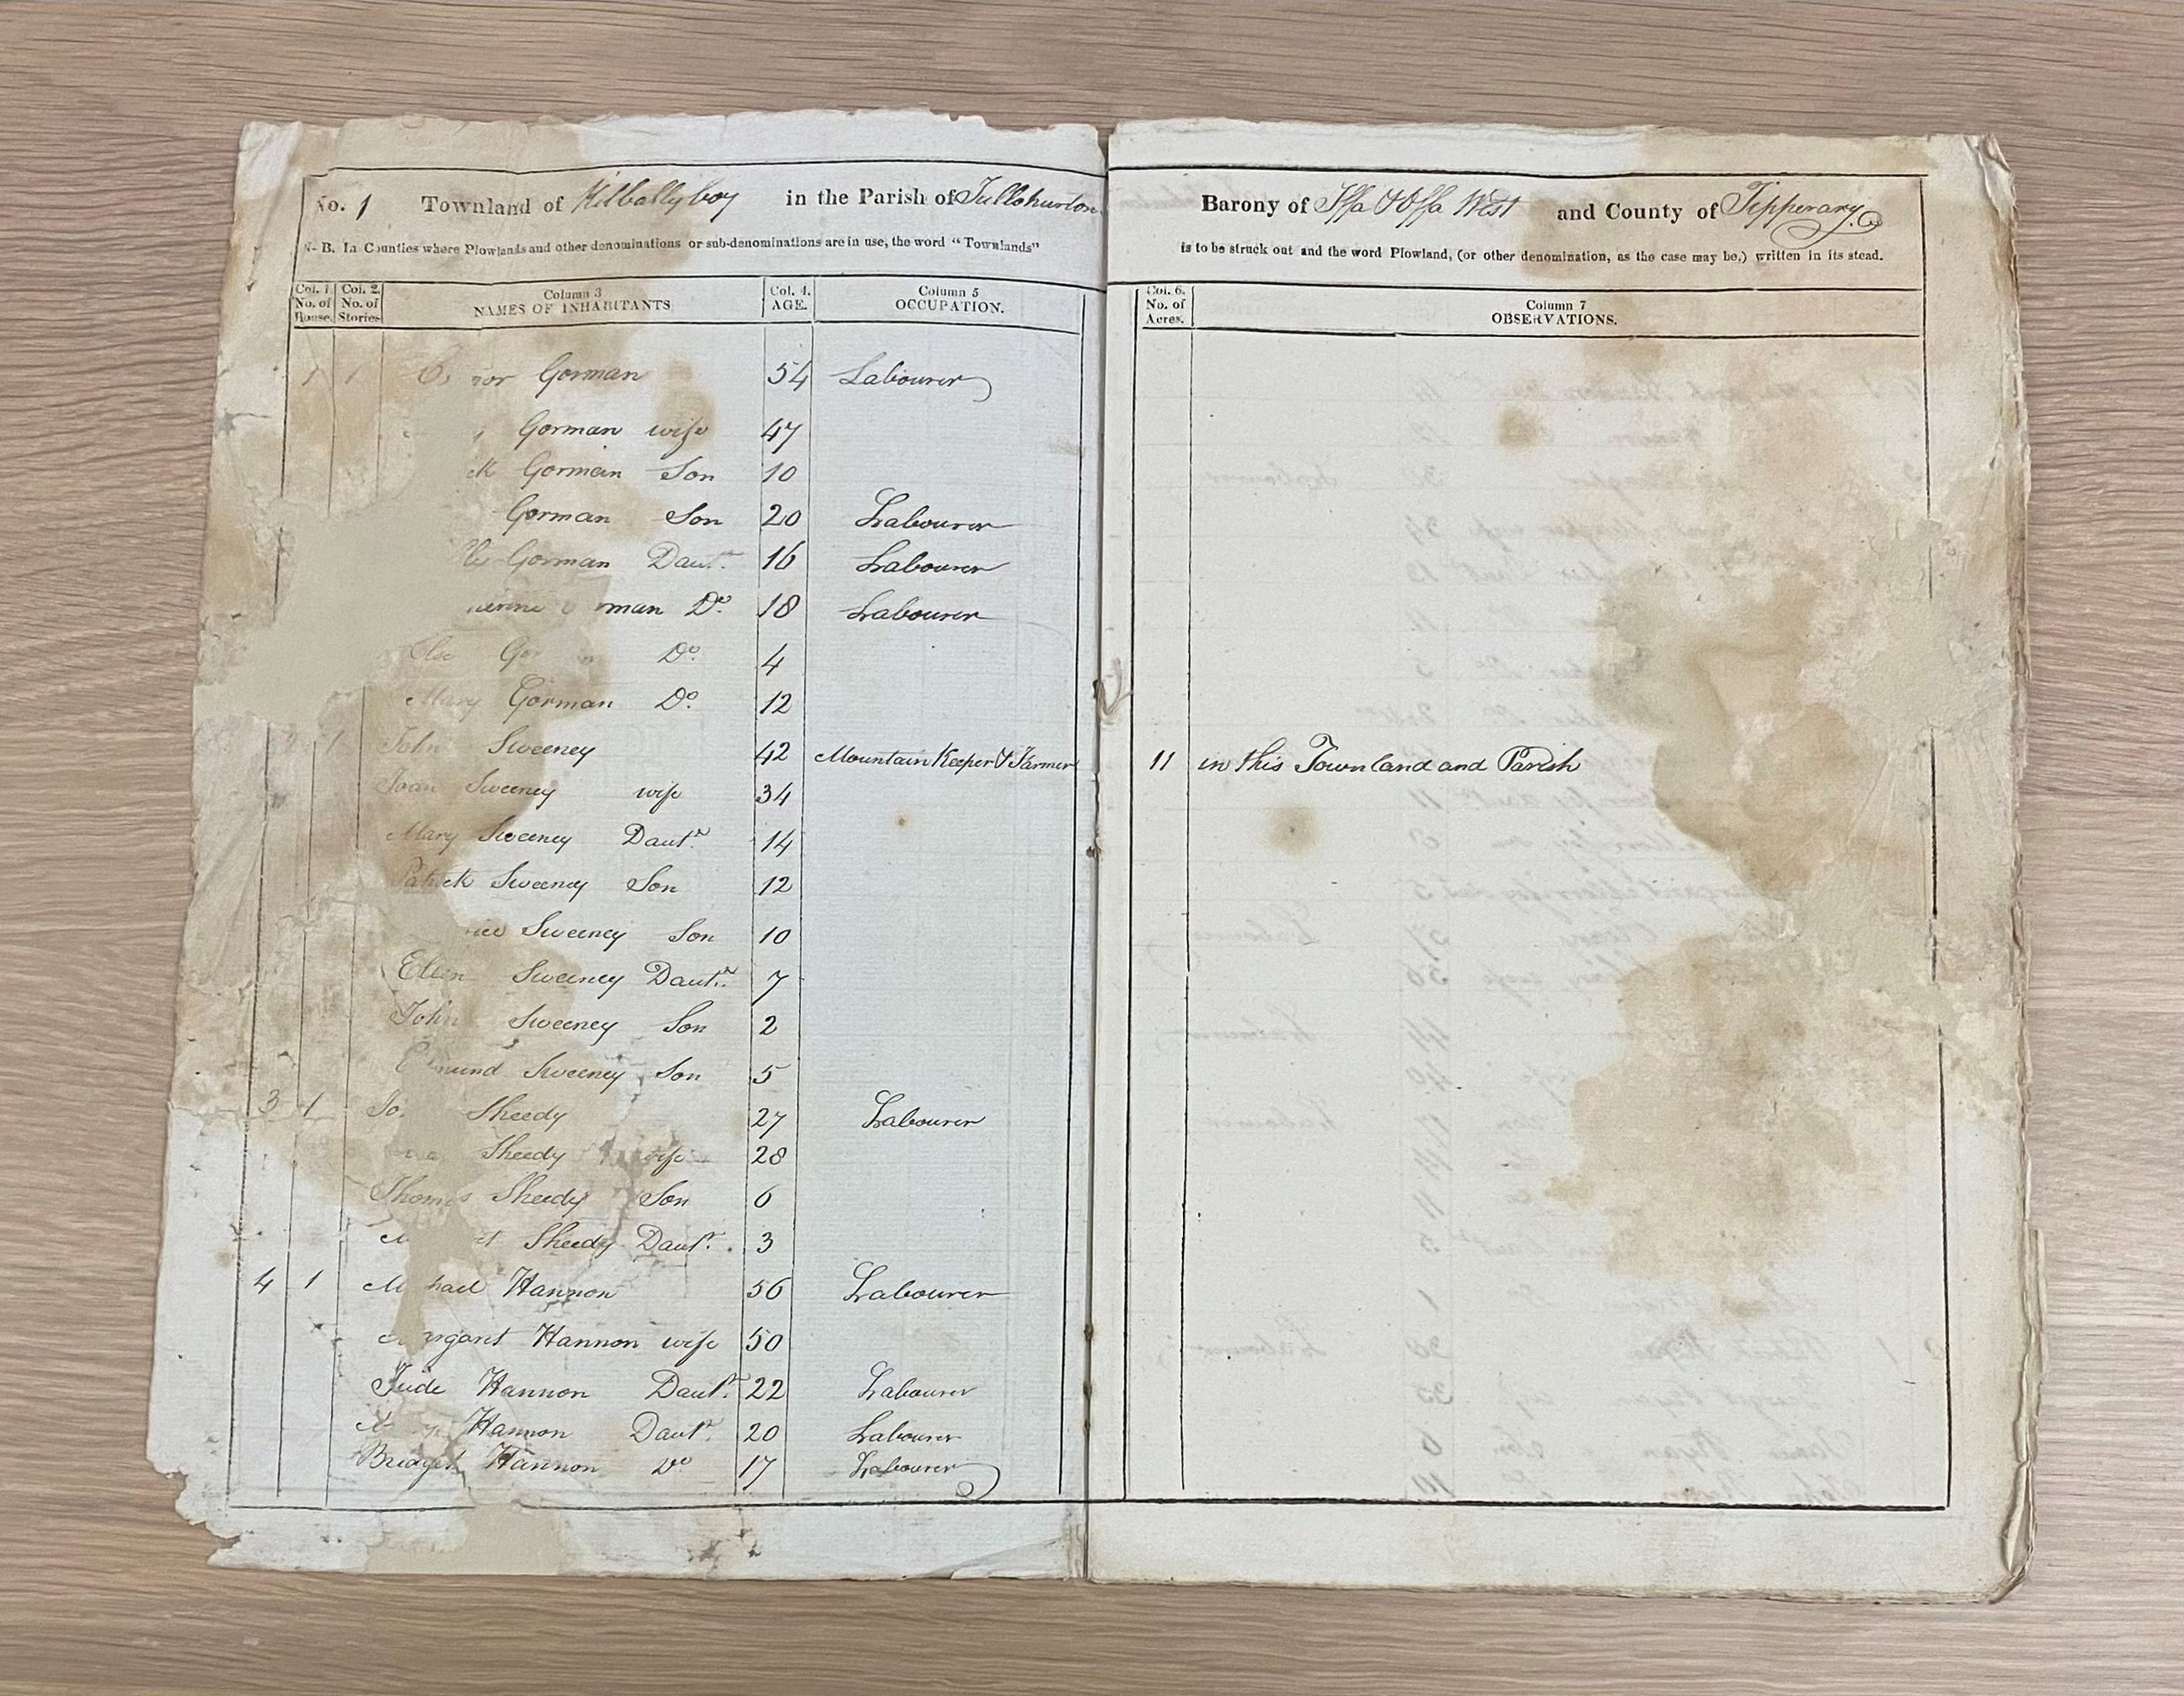 No. 1 Townland of Kilballyboy in the Parish of Tullohurton Barony of Iffa & Offa West and County of Tipperary
N. B. In Counties where Plowlands and other denominations or sub-denominations are in use, the word "Townlands" is to be struck out and the word Plowland, (or other denomination, as the case may be,) written in its stead.
Col. 1. No. of House. Col. 2. No. of Stories Column 3 NAMES OF INHABITANTS Col. 4. AGE. Column 5 OCCUPATION. Col. 6. No. of Acres. Column 7 OBSERVATIONS.
1 1 Gorman 54 Labourer
Gorman wife 47
Gorman Son 10
Gorman Son 20 Labourer
Gorman Daut. 16 Labourer
Do. 18 Labourer
Do. 4
Mary Gorman Do. 12
1 John Sweeney 42 Mountain Keeper & Farmer 11 in this Townland and Parish
Joan Sweeney wife 34
Mary Sweeney Dautr. 14
Patrick Sweeney Son 12
Sweeney Son 10
Ellen Sweeney Dautr. 7
John Sweeney Son 2
Edmund Sweeney Son 5
3 1 Sheedy 27 Labourer
Sheedy wife 28
Thomas Sheedy Son 6
Sheedy Dautr. 3
4 1 Michael Hannon 56 Labourer
Margaret Hannon wife 50
Jude Hannon Dautr. 22 Labourer
Hannon Dautr. 20 Labourer
Bridget Hannon Do 17 Labourer